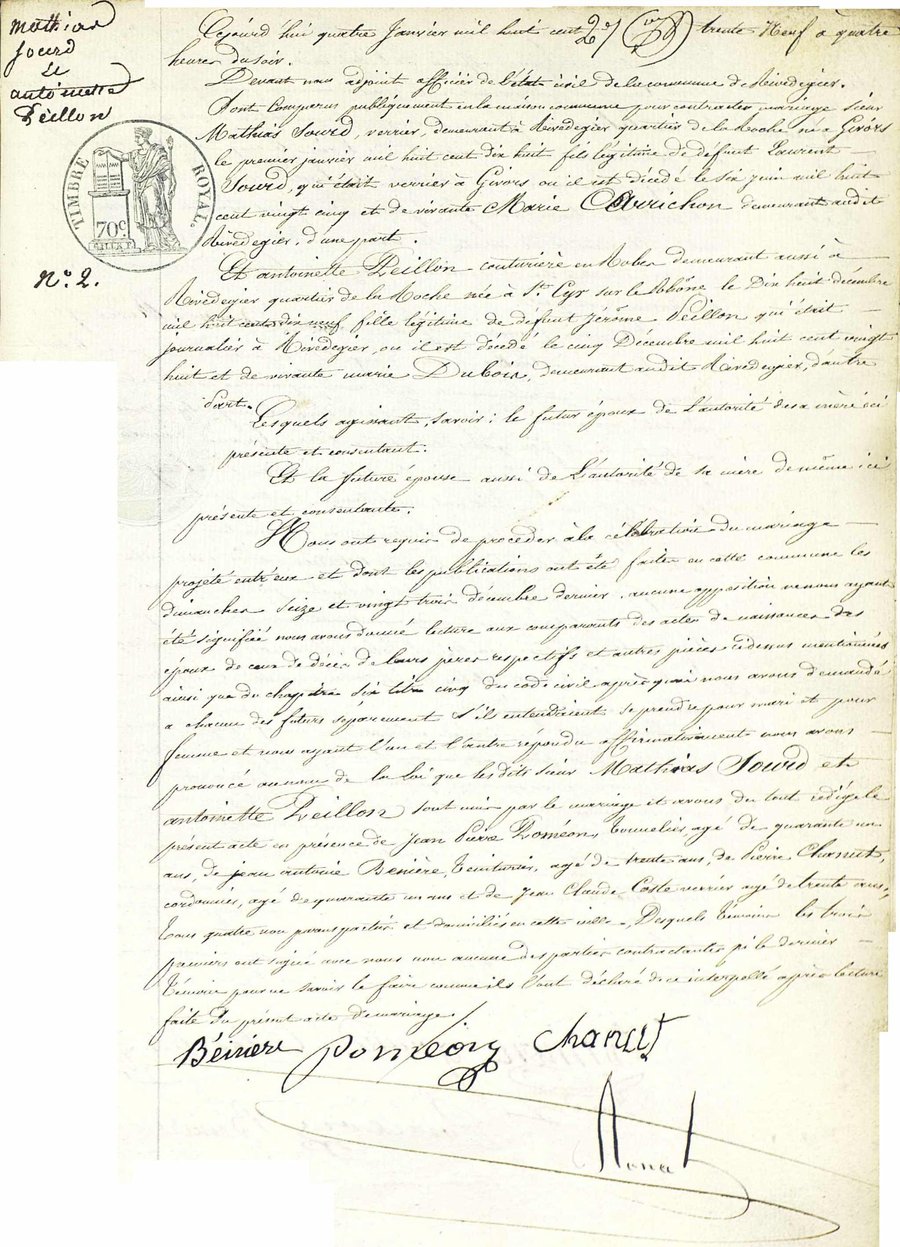 Mathias
Sourd
et
antoinette
Peillon
TIMBRE ROYAL.
70c
No. 2.
Cejourd'hui quatre Janvier mil huit cent trente Neuf à quatre
heures du soir.
Devant nous adjoint officier de l'état civil de la commune de Rivedegier.
Sont Comparus publiquement en la maison commune pour contracter mariage Sieur
Mathias Sourd, verrier, demeurant à Rivedegier quartier de la Roche né à Givors
le premier janvier mil huit cent dix huit fils légitime de défunt Laurent
Sourd, qui était verrier à Givors ou il est décédé le six juin mil huit
cent vingt cinq et de vivante Marie Carrichon demeurant audit
Rivedegier, d'une part.
Et antoinette Peillon couturière en Robes demeurant aussi à
Rivedegier quartier de la Roche née à St. Cyr sur le Rhône le Dix huit décembre
mil huit cent dix neuf fille légitime de défunt Jérôme Peillon qui était
journalier à Rivedegier, ou il est décédé le cinq Décembre mil huit cent vingt
huit et de vivante marie Dubois, demeurant audit Rivedegier, d'autre
part.
Lesquels agissant, savoir : le futur époux de l'autorité de sa mère ici
présente et consentant.
Et la future épouse aussi de l'autorité de sa mère de même ici
présente et consentante.
Nous ont requis de procéder à la célébration du mariage
projeté entr'eux et dont les publications ont été faites en cette commune les
dimanches seize et vingt trois décembre dernier, aucune opposition ne nous ayant
été signifiée nous avons donné lecture aux comparants des actes de naissances des
époux de ceux de décès de leurs pères respectifs et autres pièces cidessus mentionnées
ainsi que du chapitre six titre cinq du code civil après quoi nous avons demandé
a chacun des futurs séparément s'il entendaient se prendre pour mari et pour
femme et nous ayant l'un et l'autre répondu affirmativement nous avons
prononcé au nom de la loi que les dits sieur Mathias Sourd et
antoinette Peillon sont unis par le mariage et avons du tout rédigé le
présent acte en présence de Jean Pierre Poméon, Tonnelier, agé de quarante un
ans, de jean antoine Bénière, Teinturier, agé de trente ans, de Pierre Chanut,
cordonnier, agé de quarante un ans et de Jean Claude Coste verrier agé de trente ans,
Tous quatre non parans partés et domiciliés en cette ville. Desquels Témoins les trois
premiers ont signé avec nous non aucune des parties contractantes ni le dernier
Témoin pour ne savoir le faire comme ils l'ont déclaré de ce interpellé après lecture
faite du présent acte de mariage.
Bénière Poméon Chanut